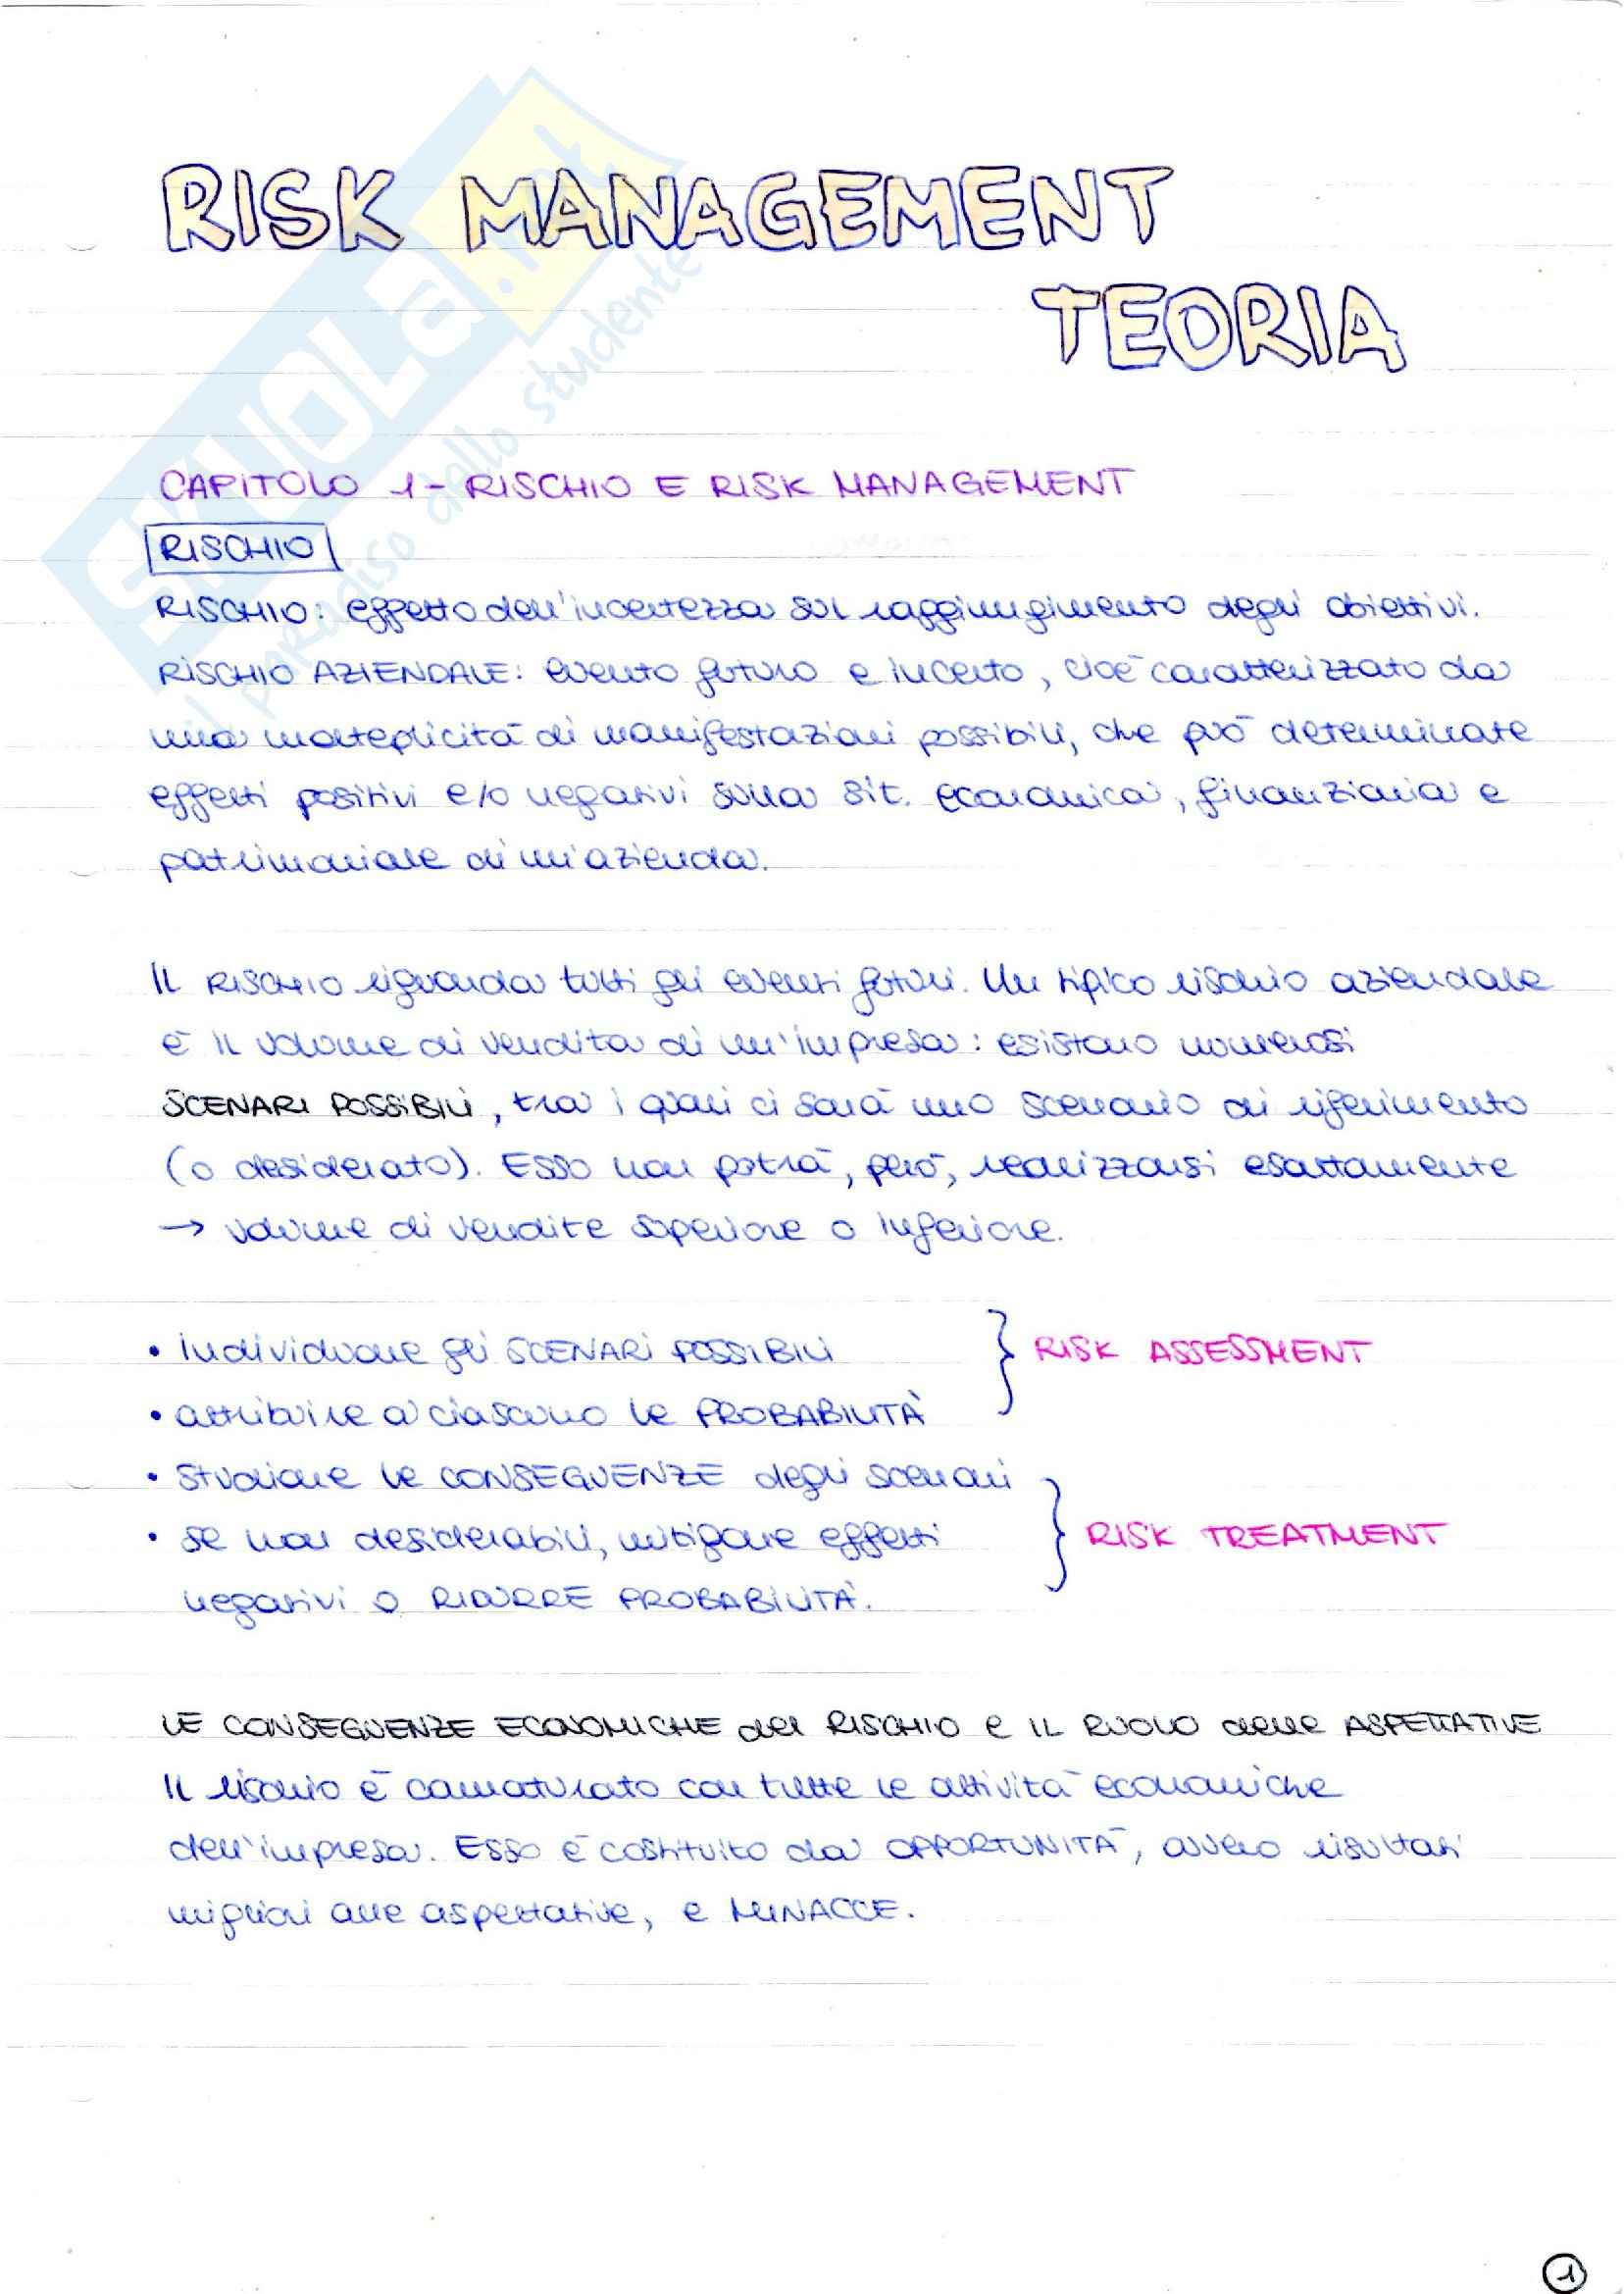 RISK MANAGEMENT
TEORIA
CAPITOLO 1 - RISCHIO E RISK MANAGEMENT
RISCHIO
RISCHIO: effetto dell'incertezza sul raggiungimento degli obiettivi.
RISCHIO AZIENDALE: evento futuro e incerto, cioè caratterizzato da
una molteplicità di manifestazioni possibili, che può determinare
effetti positivi e/o negativi sulla sit. economica, finanziaria e
patrimoniale di un'azienda.
Il RISCHIO riguarda tutti gli eventi futuri. Un tipico rischio aziendale
è il volume di vendita di un'impresa: esistono numerosi
SCENARI POSSIBILI, tra i quali ci sarà uno scenario di riferimento
(o desiderato). Esso non potrà, però, realizzarsi esattamente
→ volume di vendite superiore o inferiore.
• individuare gli SCENARI POSSIBILI } RISK ASSESSMENT
• attribuire a ciascuno le PROBABILITÀ
• studiare le CONSEGUENZE degli scenari
• se non desiderabili, mitigare effetti } RISK TREATMENT
negativi o RIDURRE PROBABILITÀ.
LE CONSEGUENZE ECONOMICHE del RISCHIO e IL RUOLO delle ASPETTATIVE
Il rischio è connaturato con tutte le attività economiche
dell'impresa. Esso è costituito da OPPORTUNITÀ, ovvero risultati
migliori alle aspettative, e MINACCE.
1
SKUOLA.net
il paradiso dello studente